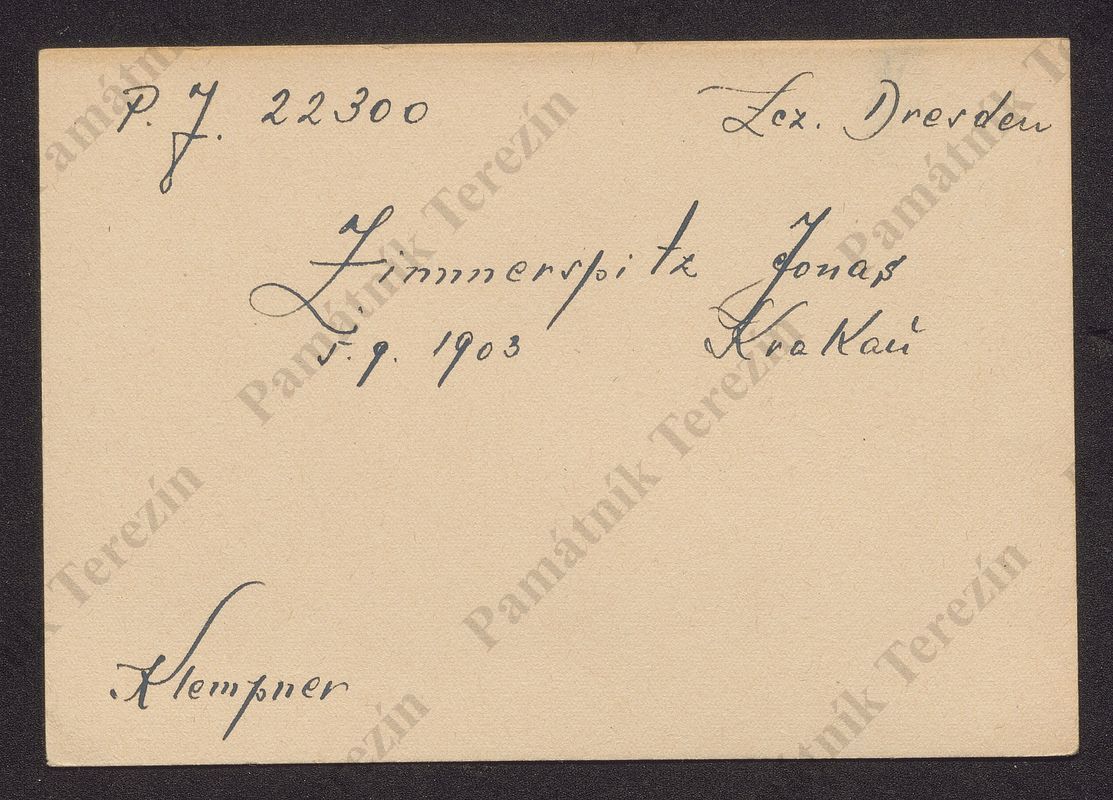 P. J. 22300 Lcz. Dresden
Zimmerspitz Jonas
5. 9. 1903 Krakau
Klempner
Památník Terezín
Památník Terezín
Památník Terezín
Památník Terezín
Památník Terezín